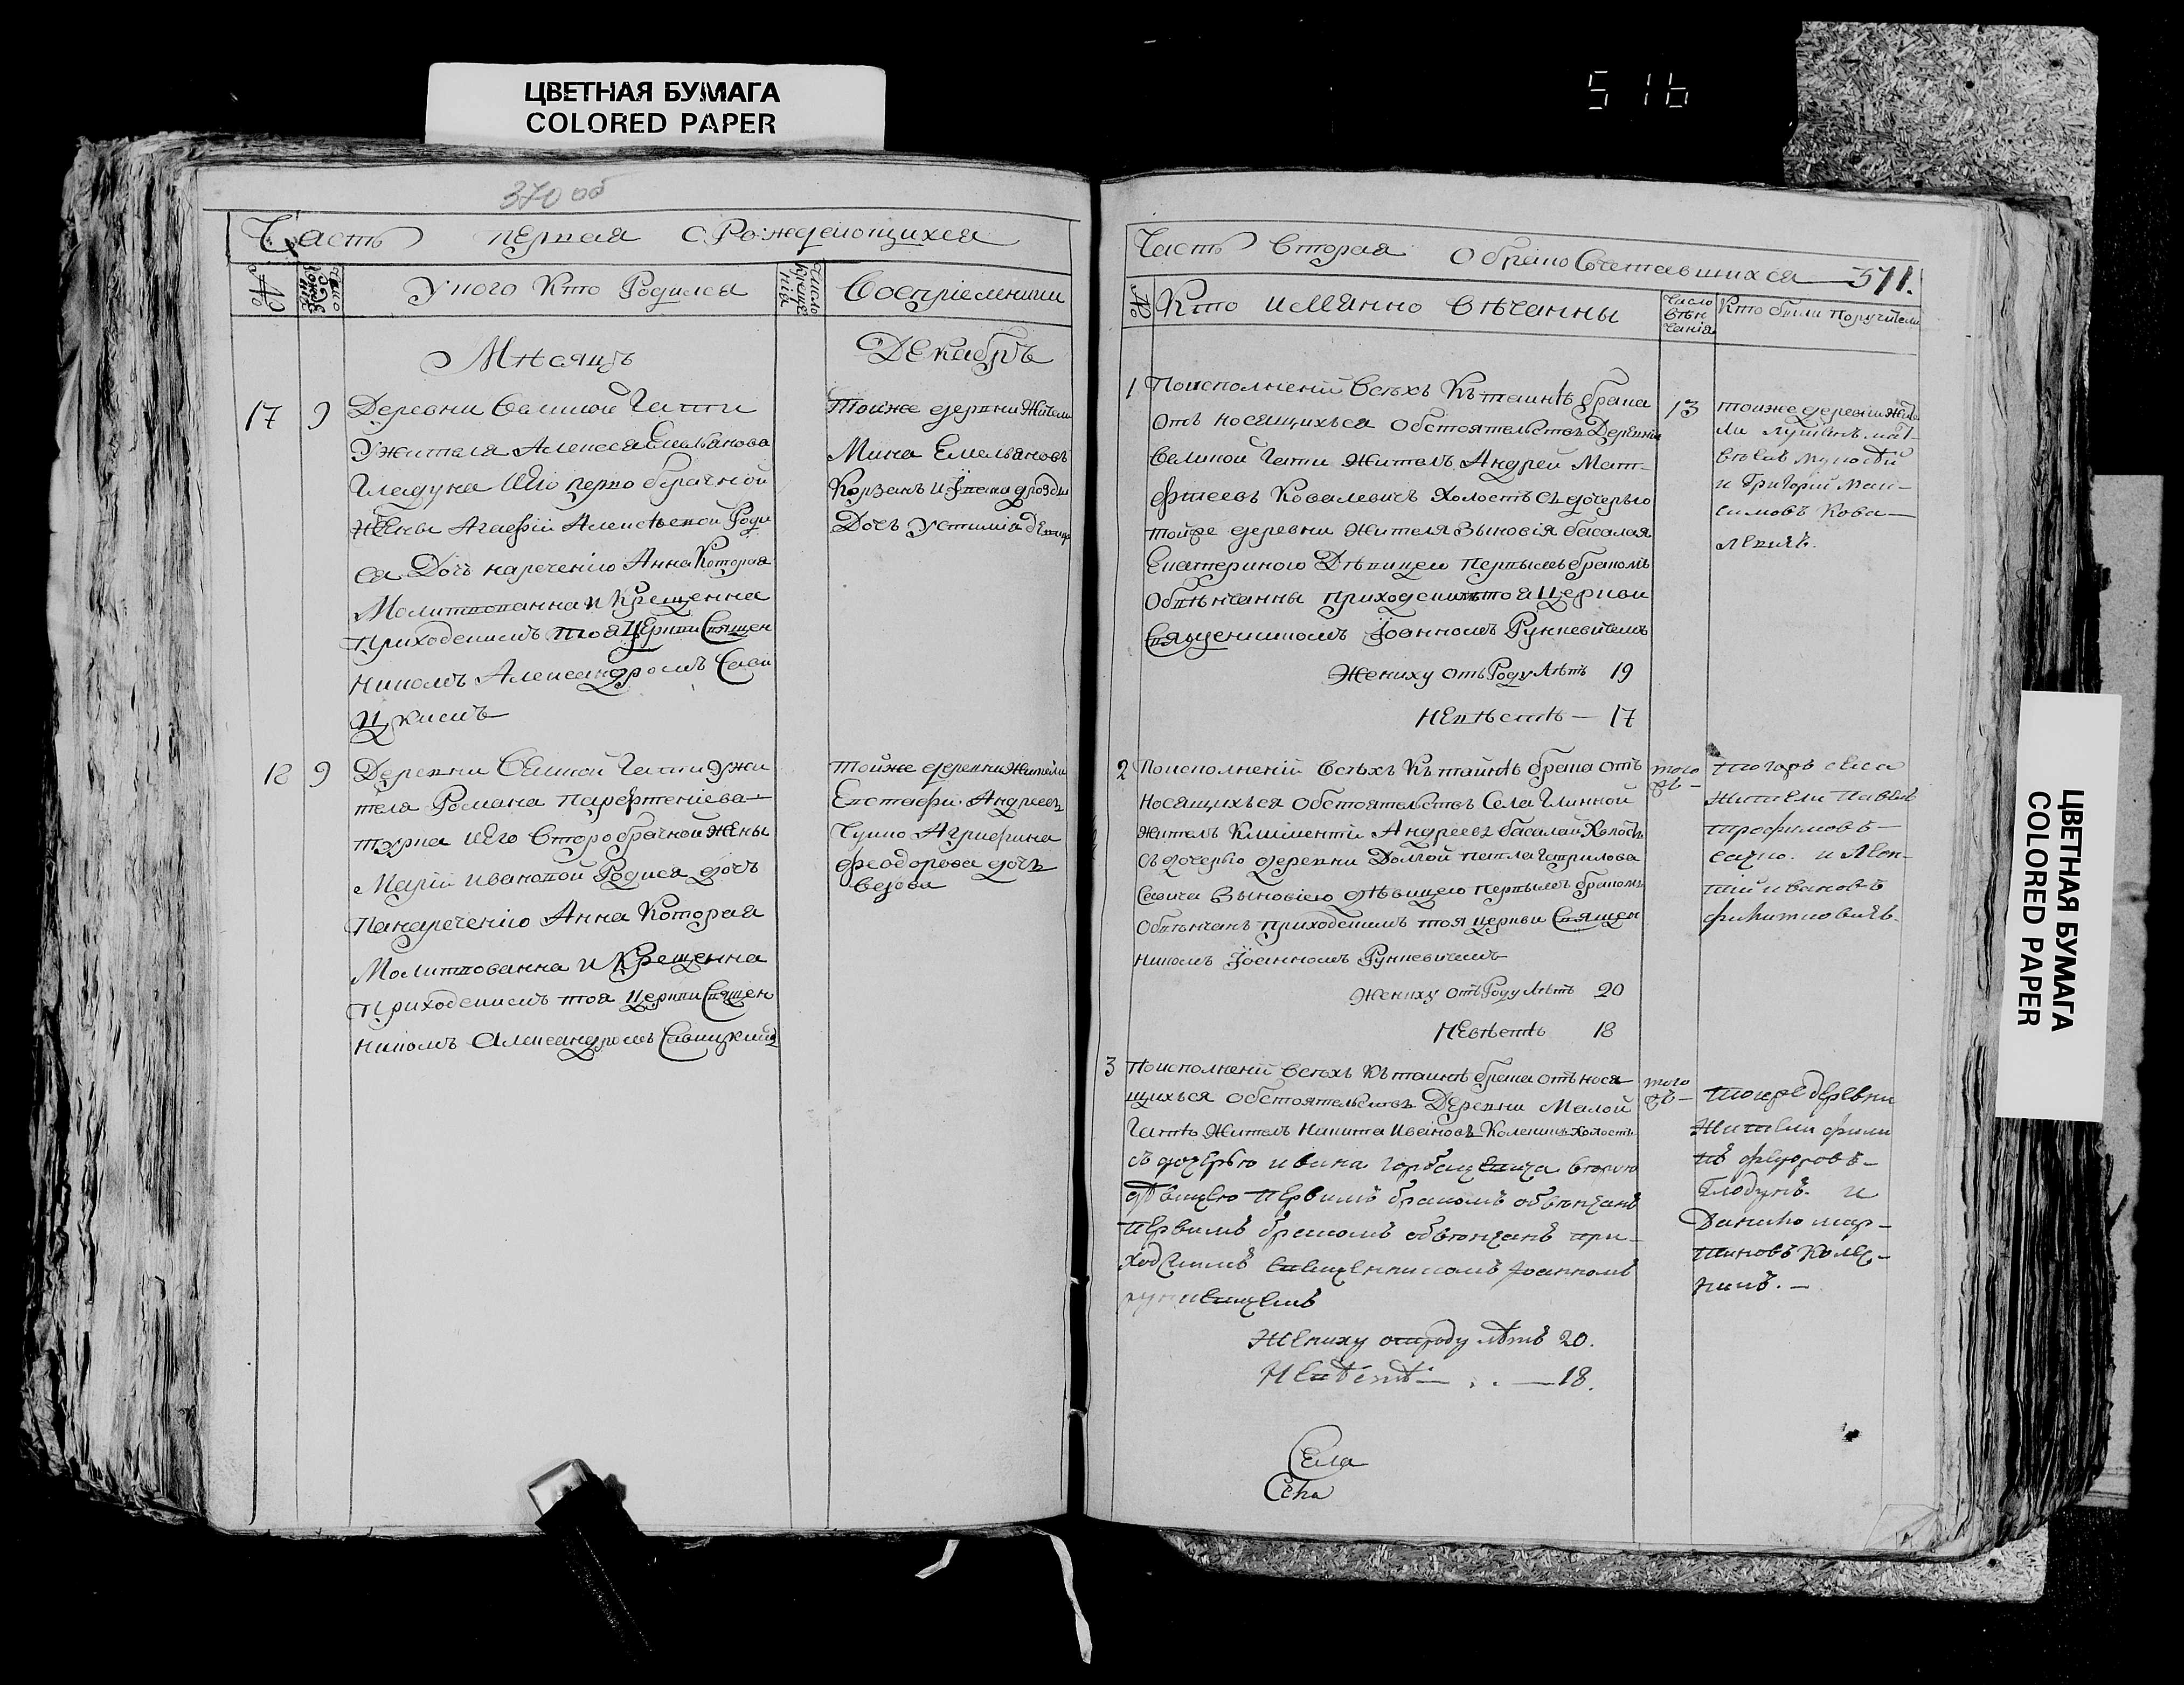 ЦВЕТНАЯ БУМАГА
COLORED PAPER
516
370 об
Часть первая о Рождающихся
№
У кого Кто Родился
Восприемники
Мѣсяцъ Декабрь
17 9 Деревни Великой Гатти
У жителя Алексея Емельянова
Гладуна и Его перво брачной
жены Агафіи Алексѣевой Роди
ся Дочь наречению Анна Которая
Молитвованна и Крещенна
Приходскимъ тоя Церкви Священ
никомъ Александромъ Сави
цкимъ
Тойже деревни Жители
Мина Емельяновъ
Корзанъ и
Дочь Устимія
18 9 Деревни Великой Гатти У жи
теля Романа Парфтеніева
и Его Второбрачной жены
Маріи Ивановой Родися дочь
Понаречению Анна Которая
Молитвованна и Крещенна
Приходскимъ тоя Церкви Священ
никомъ Александромъ Савицкимъ
Тойже деревни Жители
Евстафи Андреевъ
Агрифина
Феодорова дочь
Часть Вторая О брако Сочетавшихся 371.
№
Кто имянно Вѣнчанны
Число
Вѣн
чанія
Кто были Поручители
1 Поисполненій Всѣхъ Къ таинѣ брака
отъ носящихъся обстоятельствъ Деревни
Великой Гатти Житель Андрей Мат-
фтеевъ Ковалевичъ Холостъ съ дочерью
тойже деревни Жителя Зыновія басалая
Екатериною Дѣвицею первымъ бракомъ
Обвѣнчанны приходскимъ тоя Церкви
Священникомъ Іоанномъ Рункевичемъ
Жениху отъ Роду Лѣтъ 19
НЕвѣстѣ — 17
13
тойже деревни жите
ли
и Григорій Мак-
симовъ Кова-
левичъ.
2 Поисполненій Всѣхъ Къ таинѣ брака отъ
носящихъся обстоятельствъ Села Глинной
житель Климентій Андреевъ басалай Холостъ
съ дочерью деревни Долгой Павла Гаврилова
Савича Зыновіею дѣвицею первымъ бракомъ
Обвѣнчанъ приходскимъ тоя церкви Священ
никомъ Іоанномъ Рункевичемъ
Жениху отъ Роду Лѣтъ 20
НЕвѣстѣ 18
того
жъ —
тогожъ села
жители Павелъ
трофимовъ —
и Леон-
тій ивановъ
3 Поисполненій Всѣхъ Къ таинѣ брака отъ нося
щихъся обстоятельствъ Деревни Малой
Гаттѣ Житель Никита Ивановъ Холостъ
съ дочерью ивана
дѣвицею первимъ бракомъ обвѣнчанъ
первимъ бракомъ обвѣнчанъ при-
ходскимъ священникомъ Іоанномъ
рункевичемъ
Жениху от роду лѣтъ 20.
Невѣстѣ — . . — 18.
того
жъ —
тоеже деревни
жители фили
пъ федоровъ —
Глодунъ. и
Данило мар-
тиновъ
Села
ЦВЕТНАЯ БУМАГА
COLORED PAPER